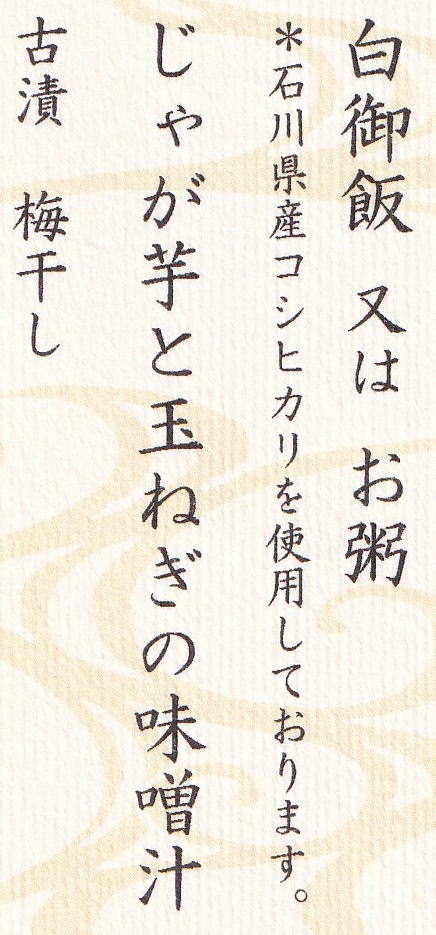 白御飯　又は　お粥
＊石川県産コシヒカリを使用しております。
じゃが芋と玉ねぎの味噌汁
古漬　梅干し